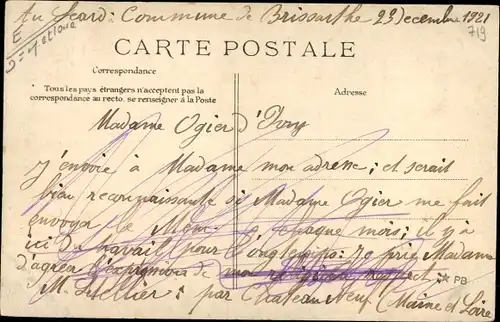 Au Feard: Commune de Brissarthe 23 Decembre 1921
719
E
CARTE POSTALE
Correspondance
Tous les pays étrangers n'acceptent pas la
correspondance au recto, se renseigner à la Poste
Adresse
Madame Ogier d'Ivry
J'envoie à Madame mon adresse; et serait
bien reconnaissante si Madame Ogier me fait
envoyer le chaque mois; il y a
ici du travail pour longtemps: Je prie Madame
d'agréer l'expression de mon respect
M. Letellier; par Chateau Neuf (Maine et Loire
PB